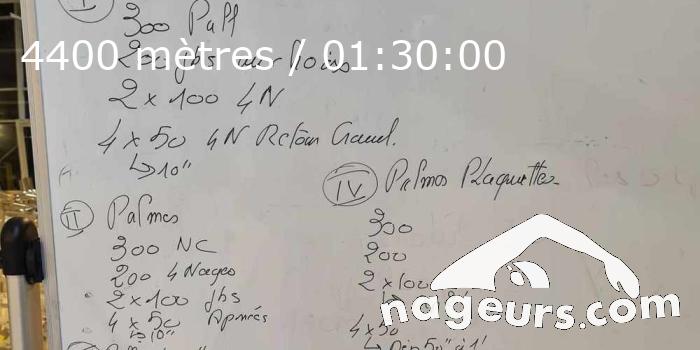 I
300 Puff
4400 mètres / 01:30:00
200 jbs
2 x 100 4N
4 x 50 4N Retour Crawl.
↳10"
II Palmes
300 NC
200 4 Nages
2 x 100 jbs
4 x 50 Apnées
↳10"
IV Palmes Plaquettes
300
200
2 x 100
4 x 50
↳ Dep 50" à 1'
nageurs.com